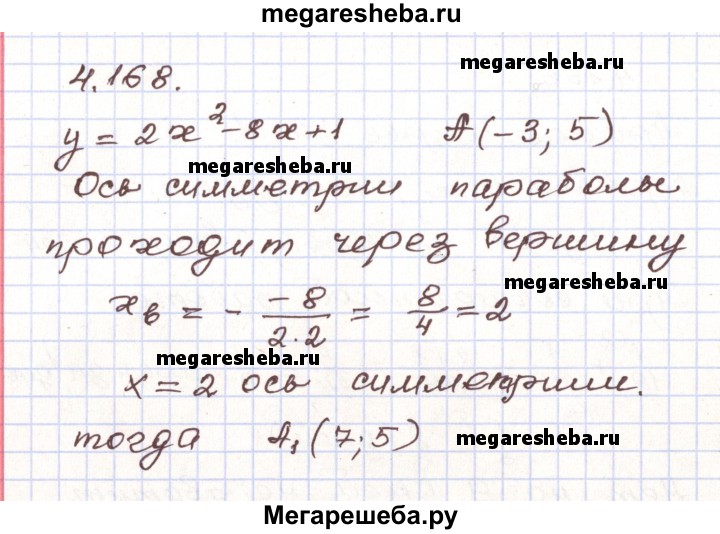 megaresheba.ru
4.168.
megaresheba.ru
y = 2x² - 8x + 1 A(-3; 5)
megaresheba.ru
Ось симметрии параболы
проходит через вершину
megaresheba.ru
x_в = - \frac{-8}{2·2} = \frac{8}{4} = 2
megaresheba.ru
x = 2 ось симметрии.
тогда A₁(7; 5)
megaresheba.ru
Мегарешеба.ру